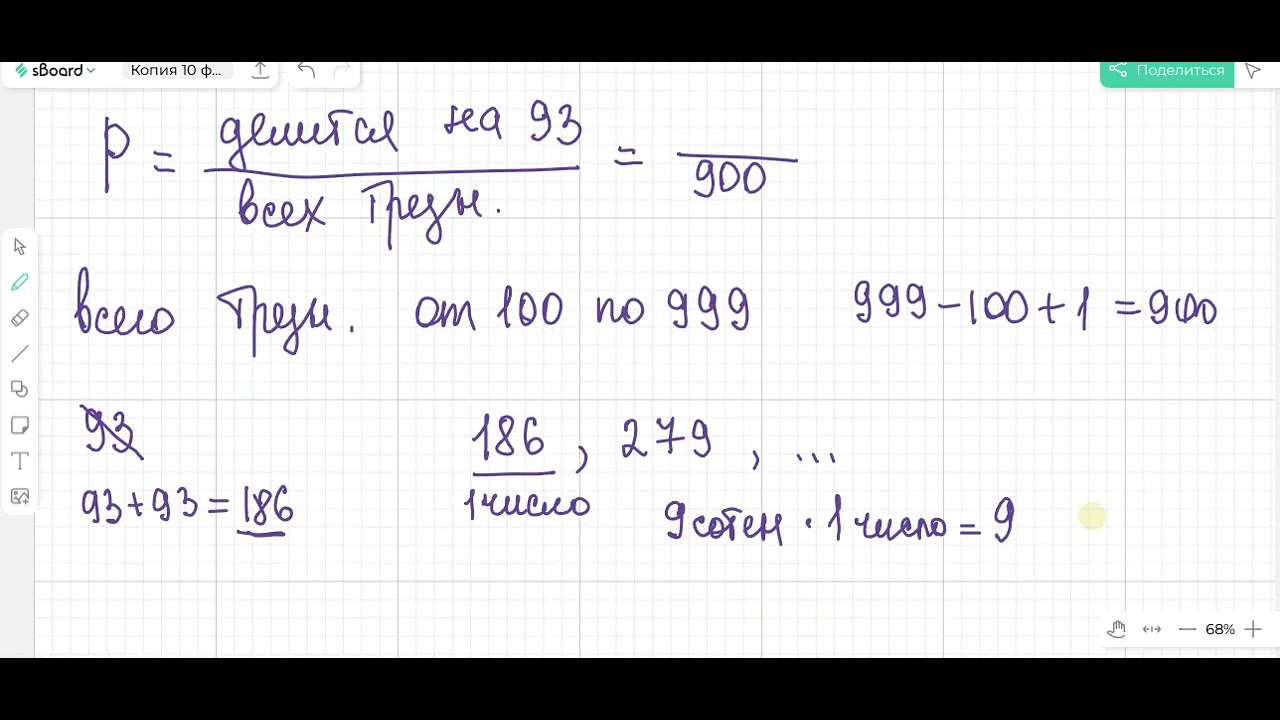 sBoard
Копия 10 ф...
Поделиться
P = делится на 93 / всех трёзн. = / 900
всего трёзн. от 100 по 999 999 - 100 + 1 = 900
93
186, 279, ...
93 + 93 = 186
1 число
9 сотен · 1 число = 9
68%